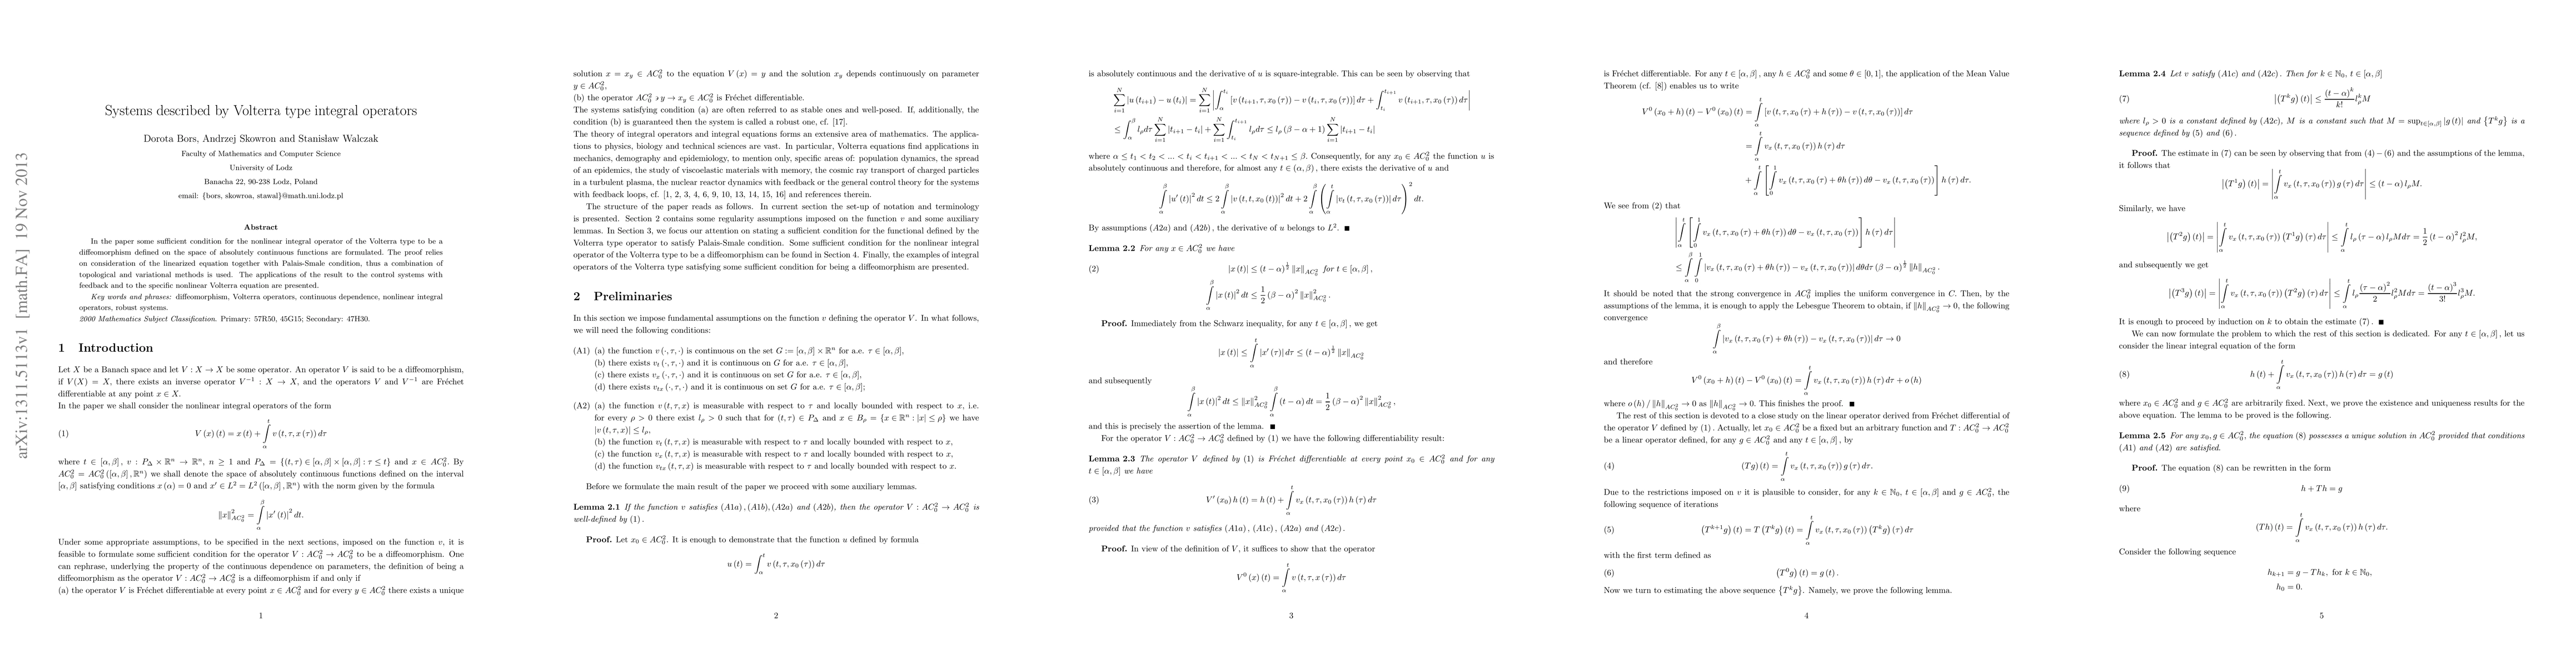 arXiv:1311.5113v1 [math.FA] 19 Nov 2013
Systems described by Volterra type integral operators
Dorota Bors, Andrzej Skowron and Stanisław Walczak
Faculty of Mathematics and Computer Science
University of Lodz
Banacha 22, 90-238 Lodz, Poland
email: {bors, skowroa, stawal}@math.uni.lodz.pl
Abstract
In the paper some sufficient condition for the nonlinear integral operator of the Volterra type to be a
diffeomorphism defined on the space of absolutely continuous functions are formulated. The proof relies
on consideration of the linearized equation together with Palais-Smale condition, thus a combination of
topological and variational methods is used. The applications of the result to the control systems with
feedback and to the specific nonlinear Volterra equation are presented.
Key words and phrases: diffeomorphism, Volterra operators, continuous dependence, nonlinear integral
operators, robust systems.
2000 Mathematics Subject Classification. Primary: 57R50, 45G15; Secondary: 47H30.
1 Introduction
Let X be a Banach space and let V : X → X be some operator. An operator V is said to be a diffeomorphism,
if V(X) = X, there exists an inverse operator V⁻¹ : X → X, and the operators V and V⁻¹ are Fréchet
differentiable at any point x ∈ X.
In the paper we shall consider the nonlinear integral operators of the form
(1) V (x) (t) = x (t) + ∫_α^t v (t, τ, x (τ)) dτ
where t ∈ [α, β], v : P_Δ × ℝⁿ → ℝⁿ, n ≥ 1 and P_Δ = {(t, τ) ∈ [α, β] × [α, β] : τ ≤ t} and x ∈ AC₀². By
AC₀² = AC₀² ([α, β], ℝⁿ) we shall denote the space of absolutely continuous functions defined on the interval
[α, β] satisfying conditions x (α) = 0 and x′ ∈ L² = L² ([α, β], ℝⁿ) with the norm given by the formula
‖x‖²_{AC₀²} = ∫_α^β |x′ (t)|² dt.
Under some appropriate assumptions, to be specified in the next sections, imposed on the function v, it is
feasible to formulate some sufficient condition for the operator V : AC₀² → AC₀² to be a diffeomorphism. One
can rephrase, underlying the property of the continuous dependence on parameters, the definition of being a
diffeomorphism as the operator V : AC₀² → AC₀² is a diffeomorphism if and only if
(a) the operator V is Fréchet differentiable at every point x ∈ AC₀² and for every y ∈ AC₀² there exists a unique
1
solution x = x_y ∈ AC₀² to the equation V (x) = y and the solution x_y depends continuously on parameter
y ∈ AC₀²,
(b) the operator AC₀² ∍ y → x_y ∈ AC₀² is Fréchet differentiable.
The systems satisfying condition (a) are often referred to as stable ones and well-posed. If, additionally, the
condition (b) is guaranteed then the system is called a robust one, cf. [17].
The theory of integral operators and integral equations forms an extensive area of mathematics. The applica-
tions to physics, biology and technical sciences are vast. In particular, Volterra equations find applications in
mechanics, demography and epidemiology, to mention only, specific areas of: population dynamics, the spread
of an epidemics, the study of viscoelastic materials with memory, the cosmic ray transport of charged particles
in a turbulent plasma, the nuclear reactor dynamics with feedback or the general control theory for the systems
with feedback loops, cf. [1, 2, 3, 4, 6, 9, 10, 13, 14, 15, 16] and references therein.
The structure of the paper reads as follows. In current section the set-up of notation and terminology
is presented. Section 2 contains some regularity assumptions imposed on the function v and some auxiliary
lemmas. In Section 3, we focus our attention on stating a sufficient condition for the functional defined by the
Volterra type operator to satisfy Palais-Smale condition. Some sufficient condition for the nonlinear integral
operator of the Volterra type to be a diffeomorphism can be found in Section 4. Finally, the examples of integral
operators of the Volterra type satisfying some sufficient condition for being a diffeomorphism are presented.
2 Preliminaries
In this section we impose fundamental assumptions on the function v defining the operator V. In what follows,
we will need the following conditions:
(A1) (a) the function v (·, τ, ·) is continuous on the set G := [α, β] × ℝⁿ for a.e. τ ∈ [α, β],
(b) there exists v_t (·, τ, ·) and it is continuous on G for a.e. τ ∈ [α, β],
(c) there exists v_x (·, τ, ·) and it is continuous on set G for a.e. τ ∈ [α, β],
(d) there exists v_{tx} (·, τ, ·) and it is continuous on set G for a.e. τ ∈ [α, β];
(A2) (a) the function v (t, τ, x) is measurable with respect to τ and locally bounded with respect to x, i.e.
for every ρ > 0 there exist l_ρ > 0 such that for (t, τ) ∈ P_Δ and x ∈ B_ρ = {x ∈ ℝⁿ : |x| ≤ ρ} we have
|v (t, τ, x)| ≤ l_ρ,
(b) the function v_t (t, τ, x) is measurable with respect to τ and locally bounded with respect to x,
(c) the function v_x (t, τ, x) is measurable with respect to τ and locally bounded with respect to x,
(d) the function v_{tx} (t, τ, x) is measurable with respect to τ and locally bounded with respect to x.
Before we formulate the main result of the paper we proceed with some auxiliary lemmas.
Lemma 2.1 If the function v satisfies (A1a), (A1b), (A2a) and (A2b), then the operator V : AC₀² → AC₀² is
well-defined by (1).
Proof. Let x₀ ∈ AC₀². It is enough to demonstrate that the function u defined by formula
u (t) = ∫_α^t v (t, τ, x₀ (τ)) dτ
2
is absolutely continuous and the derivative of u is square-integrable. This can be seen by observing that
∑_{i=1}^N |u (t_{i+1}) − u (t_i)| = ∑_{i=1}^N |∫_α^{t_i} [v (t_{i+1}, τ, x₀ (τ)) − v (t_i, τ, x₀ (τ))] dτ + ∫_{t_i}^{t_{i+1}} v (t_{i+1}, τ, x₀ (τ)) dτ|
≤ ∫_α^β l_ρ dτ ∑_{i=1}^N |t_{i+1} − t_i| + ∑_{i=1}^N ∫_{t_i}^{t_{i+1}} l_ρ dτ ≤ l_ρ (β − α + 1) ∑_{i=1}^N |t_{i+1} − t_i|
where α ≤ t₁ < t₂ < ... < t_i < t_{i+1} < ... < t_N < t_{N+1} ≤ β. Consequently, for any x₀ ∈ AC₀² the function u is
absolutely continuous and therefore, for almost any t ∈ (α, β), there exists the derivative of u and
∫_α^β |u′ (t)|² dt ≤ 2 ∫_α^β |v (t, t, x₀ (t))|² dt + 2 ∫_α^β (∫_α^t |v_t (t, τ, x₀ (τ))| dτ)² dt.
By assumptions (A2a) and (A2b), the derivative of u belongs to L². ■
Lemma 2.2 For any x ∈ AC₀² we have
(2) |x (t)| ≤ (t − α)^{1/2} ‖x‖_{AC₀²} for t ∈ [α, β],
∫_α^β |x (t)|² dt ≤ 1/2 (β − α)² ‖x‖²_{AC₀²}.
Proof. Immediately from the Schwarz inequality, for any t ∈ [α, β], we get
|x (t)| ≤ ∫_α^t |x′ (τ)| dτ ≤ (t − α)^{1/2} ‖x‖_{AC₀²}
and subsequently
∫_α^β |x (t)|² dt ≤ ‖x‖²_{AC₀²} ∫_α^β (t − α) dt = 1/2 (β − α)² ‖x‖²_{AC₀²},
and this is precisely the assertion of the lemma. ■
For the operator V : AC₀² → AC₀² defined by (1) we have the following differentiability result:
Lemma 2.3 The operator V defined by (1) is Fréchet differentiable at every point x₀ ∈ AC₀² and for any
t ∈ [α, β] we have
(3) V′ (x₀) h (t) = h (t) + ∫_α^t v_x (t, τ, x₀ (τ)) h (τ) dτ
provided that the function v satisfies (A1a), (A1c), (A2a) and (A2c).
Proof. In view of the definition of V, it suffices to show that the operator
V⁰ (x) (t) = ∫_α^t v (t, τ, x (τ)) dτ
3
is Fréchet differentiable. For any t ∈ [α, β], any h ∈ AC₀² and some θ ∈ [0, 1], the application of the Mean Value
Theorem (cf. [8]) enables us to write
V⁰ (x₀ + h) (t) − V⁰ (x₀) (t) = ∫_α^t [v (t, τ, x₀ (τ) + h (τ)) − v (t, τ, x₀ (τ))] dτ
= ∫_α^t v_x (t, τ, x₀ (τ)) h (τ) dτ
+ ∫_α^t [∫_0^1 v_x (t, τ, x₀ (τ) + θh (τ)) dθ − v_x (t, τ, x₀ (τ))] h (τ) dτ.
We see from (2) that
|∫_α^t [∫_0^1 v_x (t, τ, x₀ (τ) + θh (τ)) dθ − v_x (t, τ, x₀ (τ))] h (τ) dτ|
≤ ∫_α^β ∫_0^1 |v_x (t, τ, x₀ (τ) + θh (τ)) − v_x (t, τ, x₀ (τ))| dθdτ (β − α)^{1/2} ‖h‖_{AC₀²}.
It should be noted that the strong convergence in AC₀² implies the uniform convergence in C. Then, by the
assumptions of the lemma, it is enough to apply the Lebesgue Theorem to obtain, if ‖h‖_{AC₀²} → 0, the following
convergence
∫_α^β |v_x (t, τ, x₀ (τ) + θh (τ)) − v_x (t, τ, x₀ (τ))| dτ → 0
and therefore
V⁰ (x₀ + h) (t) − V⁰ (x₀) (t) = ∫_α^t v_x (t, τ, x₀ (τ)) h (τ) dτ + o (h)
where o (h) / ‖h‖_{AC₀²} → 0 as ‖h‖_{AC₀²} → 0. This finishes the proof. ■
The rest of this section is devoted to a close study on the linear operator derived from Fréchet differential of
the operator V defined by (1). Actually, let x₀ ∈ AC₀² be a fixed but an arbitrary function and T : AC₀² → AC₀²
be a linear operator defined, for any g ∈ AC₀² and any t ∈ [α, β], by
(4) (Tg) (t) = ∫_α^t v_x (t, τ, x₀ (τ)) g (τ) dτ.
Due to the restrictions imposed on v it is plausible to consider, for any k ∈ ℕ₀, t ∈ [α, β] and g ∈ AC₀², the
following sequence of iterations
(5) (T^{k+1}g) (t) = T (T^k g) (t) = ∫_α^t v_x (t, τ, x₀ (τ)) (T^k g) (τ) dτ
with the first term defined as
(6) (T⁰g) (t) = g (t).
Now we turn to estimating the above sequence {T^k g}. Namely, we prove the following lemma.
4
Lemma 2.4 Let v satisfy (A1c) and (A2c). Then for k ∈ ℕ₀, t ∈ [α, β]
(7) |(T^k g) (t)| ≤ (t − α)^k / k! l_ρ^k M
where l_ρ > 0 is a constant defined by (A2c), M is a constant such that M = sup_{t∈[α,β]} |g (t)| and {T^k g} is a
sequence defined by (5) and (6).
Proof. The estimate in (7) can be seen by observing that from (4) − (6) and the assumptions of the lemma,
it follows that
|(T¹g) (t)| = |∫_α^t v_x (t, τ, x₀ (τ)) g (τ) dτ| ≤ (t − α) l_ρ M.
Similarly, we have
|(T²g) (t)| = |∫_α^t v_x (t, τ, x₀ (τ)) (T¹g) (τ) dτ| ≤ ∫_α^t l_ρ (τ − α) l_ρ M dτ = 1/2 (t − α)² l_ρ² M,
and subsequently we get
|(T³g) (t)| = |∫_α^t v_x (t, τ, x₀ (τ)) (T²g) (τ) dτ| ≤ ∫_α^t l_ρ (τ − α)²/2 l_ρ² M dτ = (t − α)³/3! l_ρ³ M.
It is enough to proceed by induction on k to obtain the estimate (7). ■
We can now formulate the problem to which the rest of this section is dedicated. For any t ∈ [α, β], let us
consider the linear integral equation of the form
(8) h (t) + ∫_α^t v_x (t, τ, x₀ (τ)) h (τ) dτ = g (t)
where x₀ ∈ AC₀² and g ∈ AC₀² are arbitrarily fixed. Next, we prove the existence and uniqueness results for the
above equation. The lemma to be proved is the following.
Lemma 2.5 For any x₀, g ∈ AC₀², the equation (8) possesses a unique solution in AC₀² provided that conditions
(A1) and (A2) are satisfied.
Proof. The equation (8) can be rewritten in the form
(9) h + Th = g
where
(Th) (t) = ∫_α^t v_x (t, τ, x₀ (τ)) h (τ) dτ.
Consider the following sequence
h_{k+1} = g − Th_k, for k ∈ ℕ₀,
h₀ = 0.
5